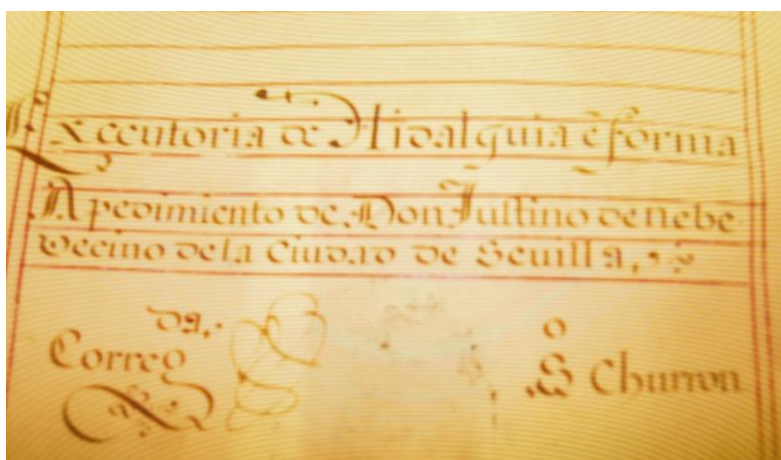 Executoria de Hidalguia ẽ forma
A pedimiento de Don Justino de nebe
vecino de la Ciudad de Sevilla,
da,
Correg
o
S Churron